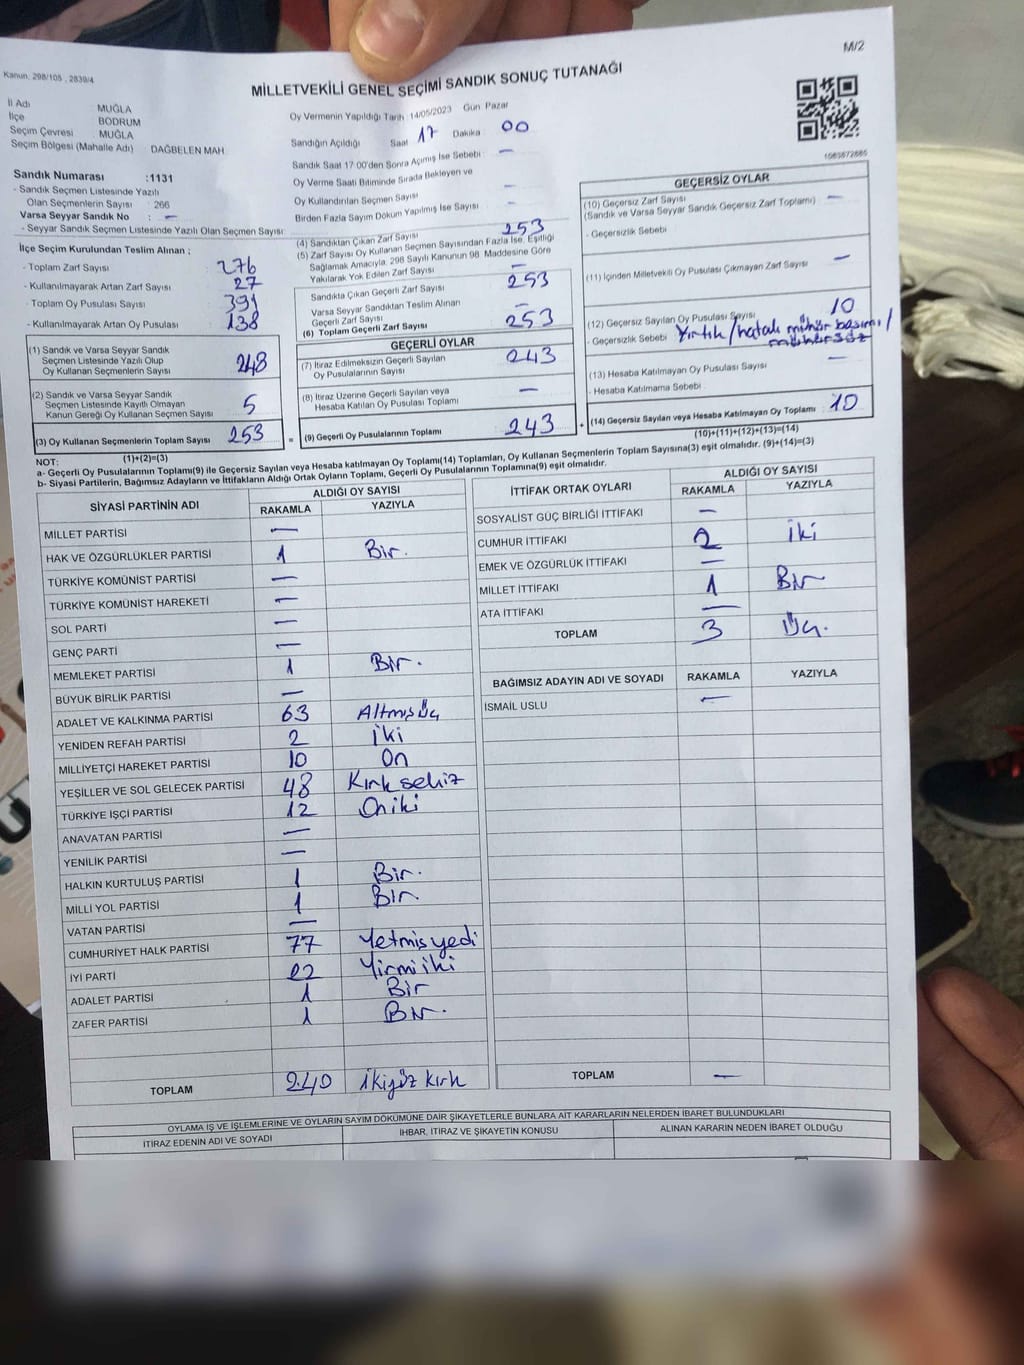 M/2
Kanun: 298/105 , 2839/4
MİLLETVEKİLİ GENEL SEÇİMİ SANDIK SONUÇ TUTANAĞI
İl Adı MUĞLA
İlçe BODRUM
Seçim Çevresi MUĞLA
Seçim Bölgesi (Mahalle Adı) DAĞBELEN MAH
Sandık Numarası :1131
- Sandık Seçmen Listesinde Yazılı
Olan Seçmenlerin Sayısı : 266
Varsa Seyyar Sandık No : —
- Seyyar Sandık Seçmen Listesinde Yazılı Olan Seçmen Sayısı:
Oy Vermenin Yapıldığı Tarih :14/05/2023 Gün: Pazar
Sandığın Açıldığı Saat : 17 Dakika : 00
Sandık Saat 17:00'den Sonra Açımış İse Sebebi : —
Oy Verme Saati Bitiminde Sırada Bekleyen ve
Oy Kullandırılan Seçmen Sayısı : —
Birden Fazla Sayım Döküm Yapılmış İse Sayısı : —
1563872885
İlçe Seçim Kurulundan Teslim Alınan ;
- Toplam Zarf Sayısı : 276
- Kullanılmayarak Artan Zarf Sayısı : 27
- Toplam Oy Pusulası Sayısı : 391
- Kullanılmayarak Artan Oy Pusulası : 138
(1) Sandık ve Varsa Seyyar Sandık
Seçmen Listesinde Yazılı Olup
Oy Kullanan Seçmenlerin Sayısı 248
(2) Sandık ve Varsa Seyyar Sandık
Seçmen Listesinde Kayıtlı Olmayan
Kanun Gereği Oy Kullanan Seçmen Sayısı 5
(3) Oy Kullanan Seçmenlerin Toplam Sayısı 253
(1)+(2)=(3)
(4) Sandıktan Çıkan Zarf Sayısı 253
(5) Zarf Sayısı Oy Kullanan Seçmen Sayısından Fazla İse, Eşitliği
Sağlamak Amacıyla, 298 Sayılı Kanunun 98. Maddesine Göre
Yakılarak Yok Edilen Zarf Sayısı —
Sandıkta Çıkan Geçerli Zarf Sayısı 253
Varsa Seyyar Sandıktan Teslim Alınan
Geçerli Zarf Sayısı —
(6) Toplam Geçerli Zarf Sayısı 253
GEÇERLİ OYLAR
(7) İtiraz Edilmeksizin Geçerli Sayılan
Oy Pusulalarının Sayısı 243
(8) İtiraz Üzerine Geçerli Sayılan veya
Hesaba Katılan Oy Pusulası Toplamı —
= (9) Geçerli Oy Pusulalarının Toplamı 243 +
GEÇERSİZ OYLAR
(10) Geçersiz Zarf Sayısı
(Sandık ve Varsa Seyyar Sandık Geçersiz Zarf Toplamı) —
- Geçersizlik Sebebi :
(11) İçinden Milletvekili Oy Pusulası Çıkmayan Zarf Sayısı —
(12) Geçersiz Sayılan Oy Pusulası Sayısı 10
- Geçersizlik Sebebi : Yırtık/hatalı mühür basımı/
mühürsüz
(13) Hesaba Katılmayan Oy Pusulası Sayısı —
- Hesaba Katılmama Sebebi :
(14) Geçersiz Sayılan veya Hesaba Katılmayan Oy Toplamı 10
(10)+(11)+(12)+(13)=(14)
NOT:
a- Geçerli Oy Pusulalarının Toplamı(9) ile Geçersiz Sayılan veya Hesaba katılmayan Oy Toplamı(14) Toplamları, Oy Kullanan Seçmenlerin Toplam Sayısına(3) eşit olmalıdır. (9)+(14)=(3)
b- Siyasi Partilerin, Bağımsız Adayların ve İttifakların Aldığı Ortak Oyların Toplamı, Geçerli Oy Pusulalarının Toplamına(9) eşit olmalıdır.
SİYASİ PARTİNİN ADI ALDIĞI OY SAYISI
RAKAMLA YAZIYLA
MİLLET PARTİSİ —
HAK VE ÖZGÜRLÜKLER PARTİSİ 1 Bir.
TÜRKİYE KOMÜNİST PARTİSİ —
TÜRKİYE KOMÜNİST HAREKETİ —
SOL PARTİ —
GENÇ PARTİ —
MEMLEKET PARTİSİ 1 Bir.
BÜYÜK BİRLİK PARTİSİ —
ADALET VE KALKINMA PARTİSİ 63 Altmışüç
YENİDEN REFAH PARTİSİ 2 İki
MİLLİYETÇİ HAREKET PARTİSİ 10 On
YEŞİLLER VE SOL GELECEK PARTİSİ 48 Kırk sekiz
TÜRKİYE İŞÇİ PARTİSİ 12 Oniki
ANAVATAN PARTİSİ —
YENİLİK PARTİSİ —
HALKIN KURTULUŞ PARTİSİ 1 Bir.
MİLLİ YOL PARTİSİ 1 Bir.
VATAN PARTİSİ —
CUMHURİYET HALK PARTİSİ 77 Yetmiş yedi
İYİ PARTİ 22 Yirmi iki
ADALET PARTİSİ 1 Bir
ZAFER PARTİSİ 1 Bir.
TOPLAM 240 İkiyüz kırk
İTTİFAK ORTAK OYLARI ALDIĞI OY SAYISI
RAKAMLA YAZIYLA
SOSYALİST GÜÇ BİRLİĞİ İTTİFAKI —
CUMHUR İTTİFAKI 2 İki
EMEK VE ÖZGÜRLÜK İTTİFAKI —
MİLLET İTTİFAKI 1 Bir
ATA İTTİFAKI —
TOPLAM 3 Üç.
BAĞIMSIZ ADAYIN ADI VE SOYADI RAKAMLA YAZIYLA
İSMAİL USLU —
TOPLAM —
OYLAMA İŞ VE İŞLEMLERİNE VE OYLARIN SAYIM DÖKÜMÜNE DAİR ŞİKAYETLERLE BUNLARA AİT KARARLARIN NELERDEN İBARET BULUNDUKLARI
İTİRAZ EDENİN ADI VE SOYADI İHBAR, İTİRAZ VE ŞİKAYETİN KONUSU ALINAN KARARIN NEDEN İBARET OLDUĞU